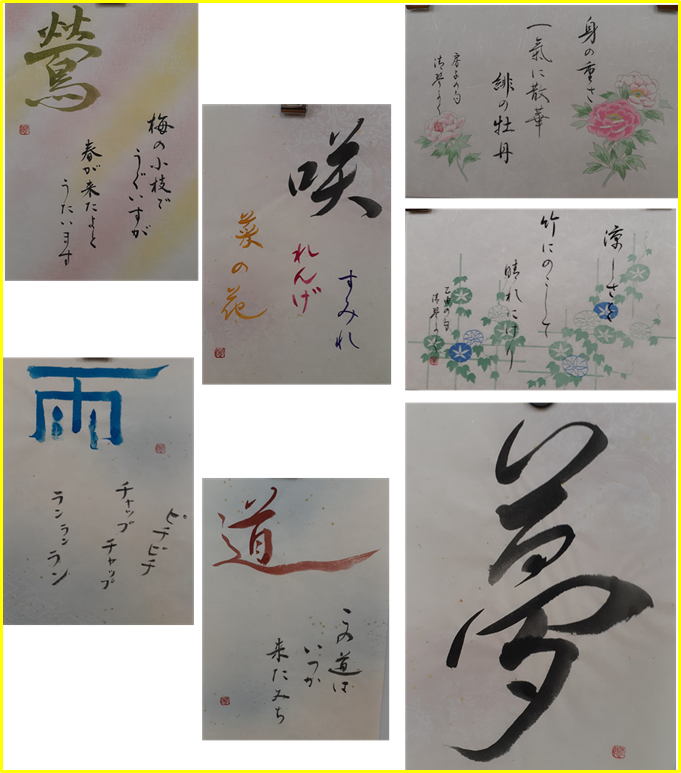 鶯
梅の小枝で
うぐいすが
春が来たよと
うたいます
咲
すみれ
れんげ
菜の花
身の重さ
一氣に散華
緋の牡丹
涼しさを
竹にのこして
晴れにけり
雨
ピチピチ
チャップ
チャップ
ランランラン
道
この道は
いつか
来たみち
夢